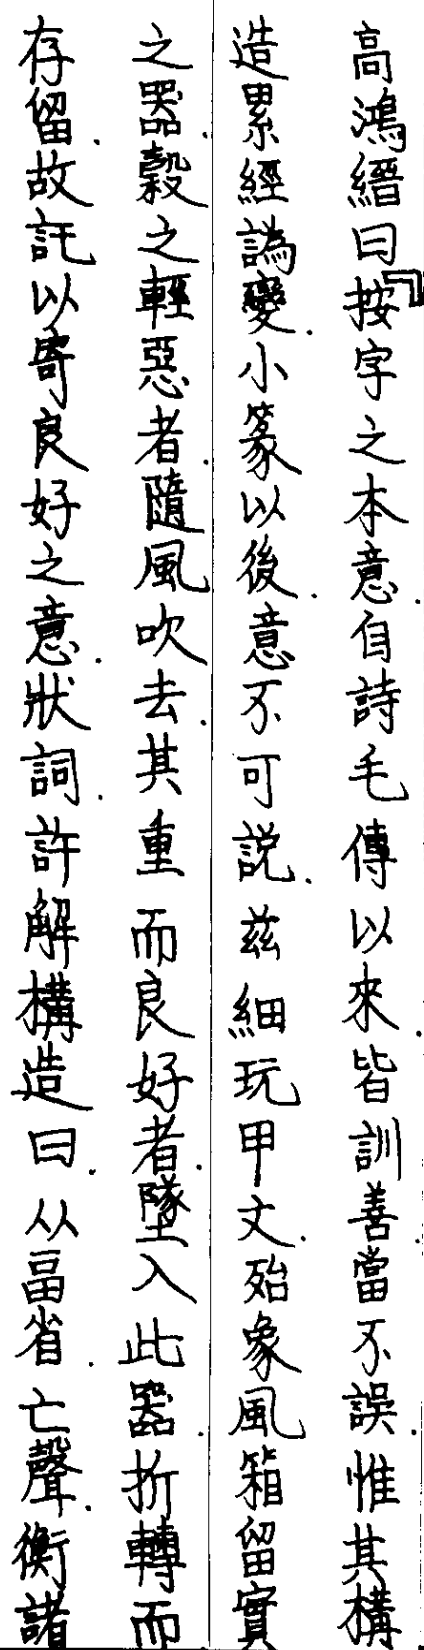 高鴻縉曰『按字之本意．自詩毛傳以來．皆訓善當不誤．惟其構
造累經譌變．小篆以後．意不可説．茲細玩甲文．殆象風箱留實
之器．穀之輕惡者．隨風吹去．其重而良好者．墜入此器．折轉而
存留．故託以寄良好之意．狀詞．許解構造曰．从畐省．亡聲．衡諸